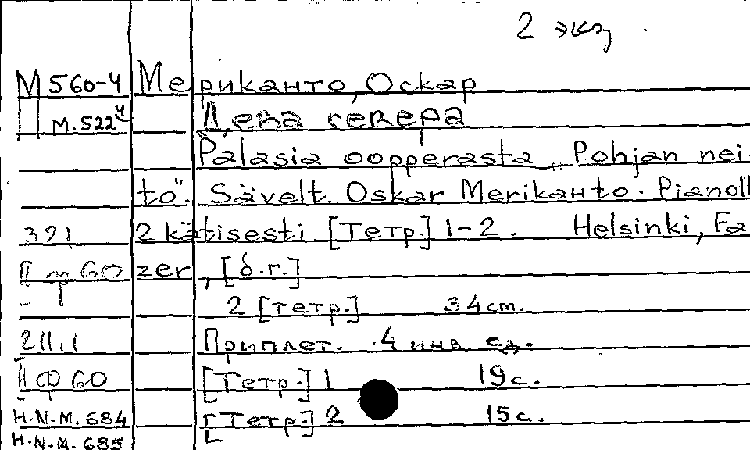 2 экз.
М 560-4 Мериканто, Оскар
М.522ч Дева севера
Palasia oopperasta „Pohjan nei-
to". Sävelt. Oskar Merikanto. Pianoll
321 2 kätisesti [Тетр.] 1-2. Helsinki, Fa
II м 60 zer, [б.г.]
2 [тетр.] 34 см.
211.1 Приплет. 4 инв. ед.
II ф 60 [Тетр.] 1 19 с.
H.N.M. 684 [Тетр.] 2 15 с.
H.N.M. 685